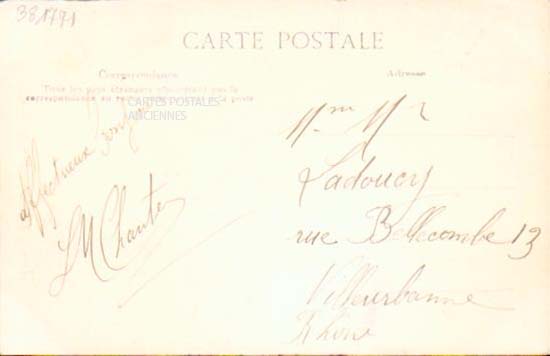 CARTE POSTALE
Correspondance
Tous les pays étrangers n'acceptent pas la
correspondance au recto la poste
Adresse
CARTES POSTALES
ANCIENNES
affectueux
LM Chante
Ladoucy
rue Bellecombe 13
Villeurbanne
Rhône